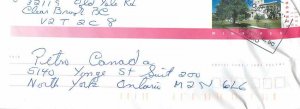 32119 Old Yale Rd.
Clearbrook BC
V2T 2C8
Petro Canada
5140 Yonge St Suit 200
North York Ontario M2N 6L6